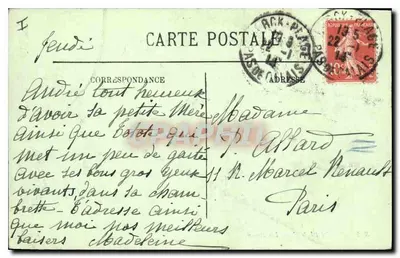 I
Jeudi
CARTE POSTALE
CORRESPONDANCE
ADRESSE
RCK-PLAGE
PAS DE
André tout heureux
d'avoir sa petite Mère
ainsi que Totote, qui
met un peu de gaité
avec ses bons gros yeux
vivants dans sa cham
brette. T'adresse ainsi
que moi nos meilleurs
baisers Madeleine
Madame
P. Allard
11 R. Marcel Renault
Paris